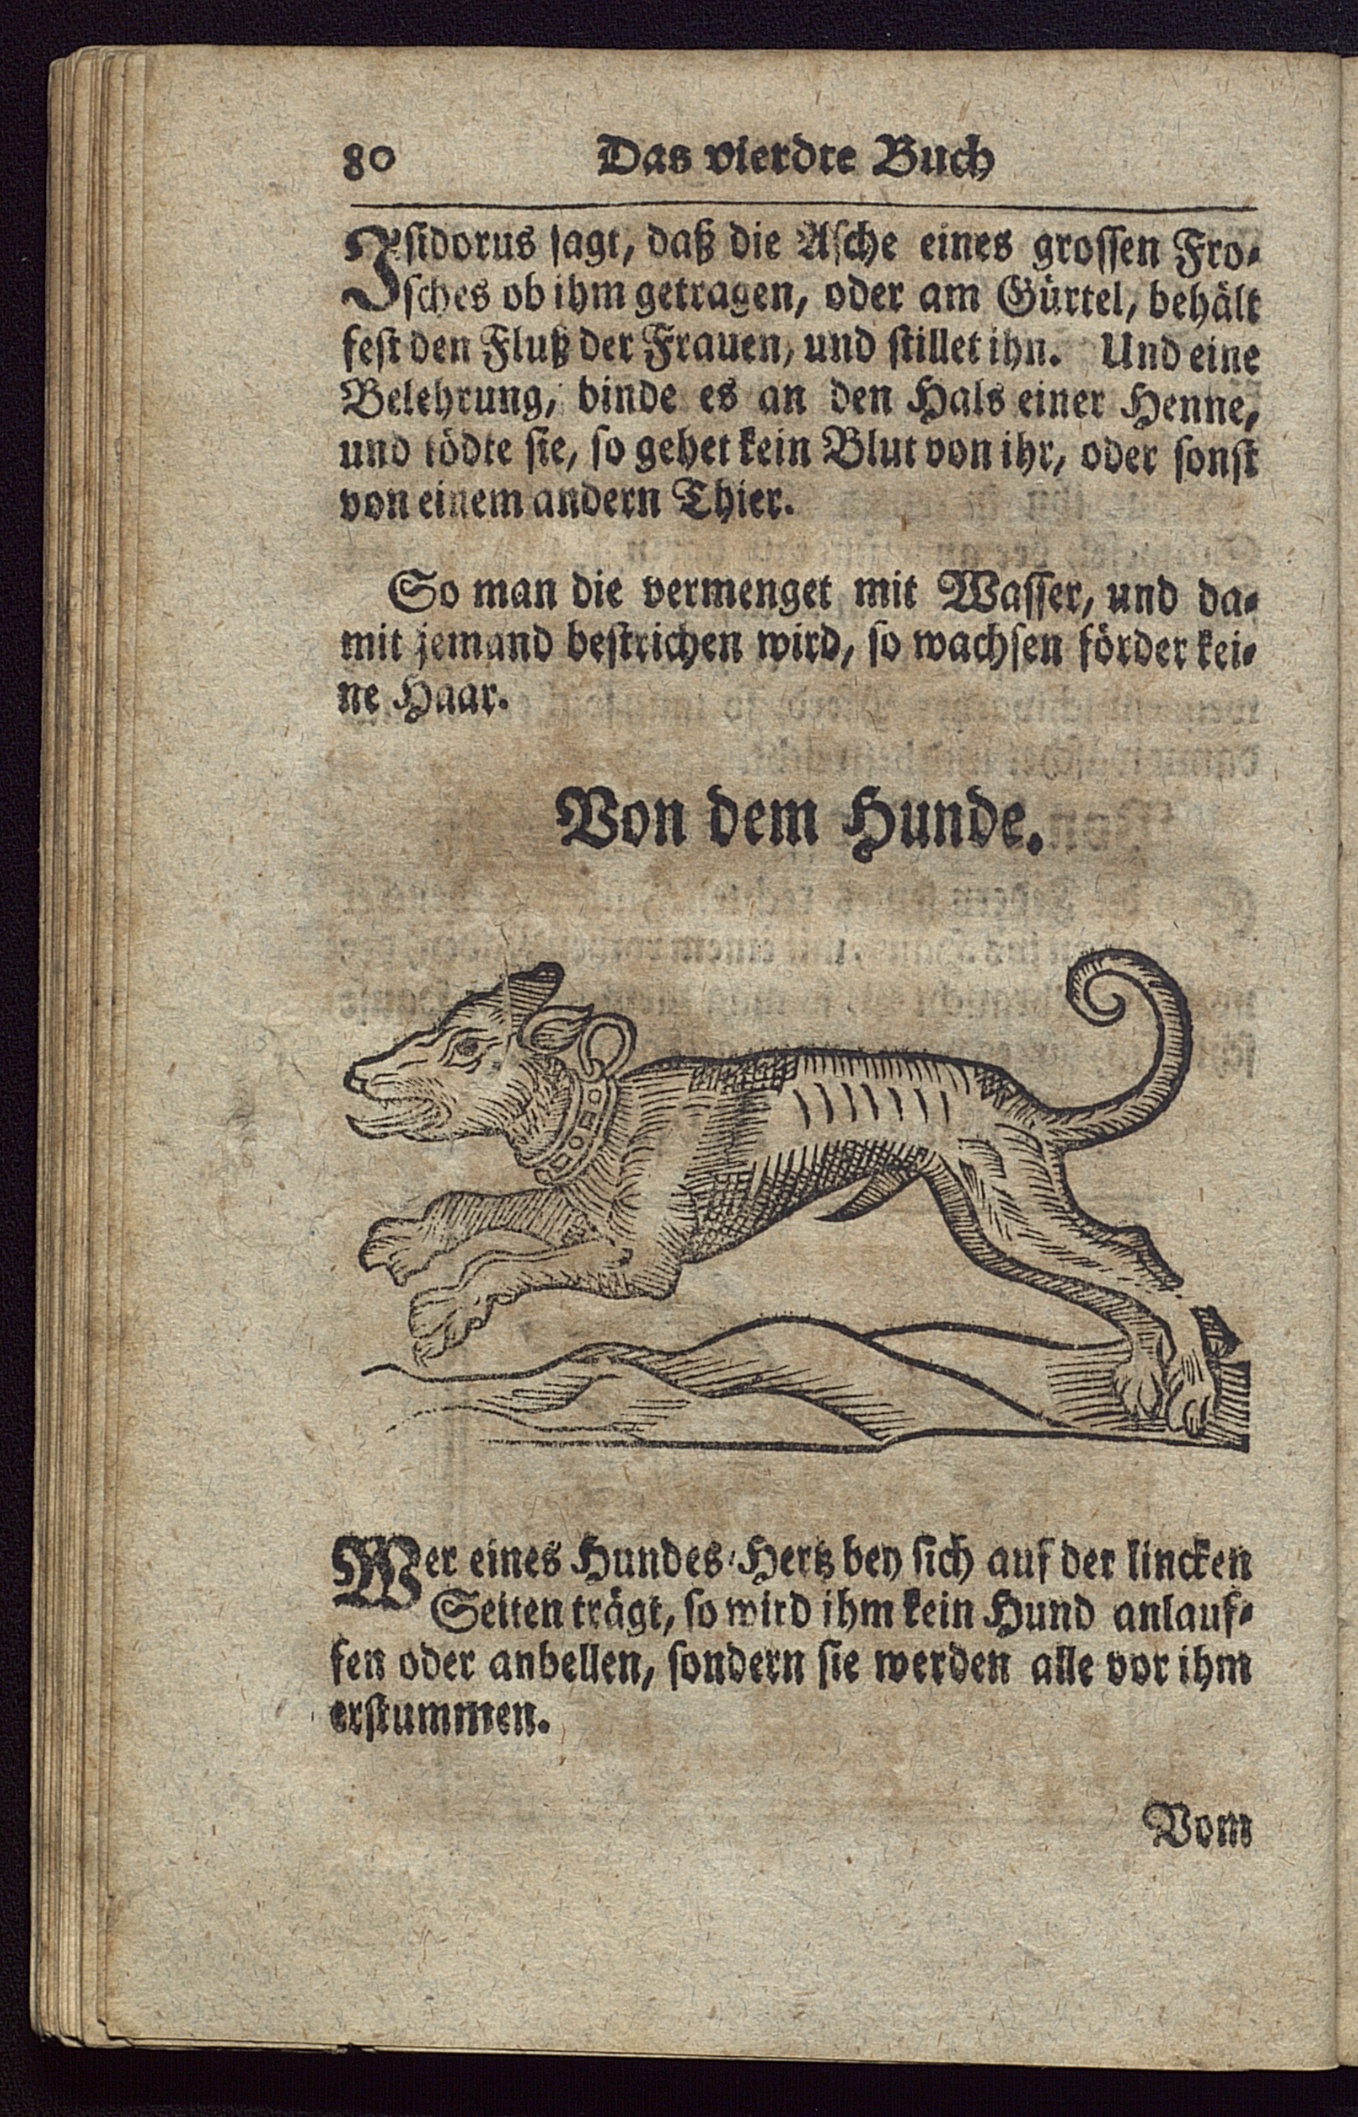 80 Das vierdte Buch
Isidorus sagt, daß die Asche eines grossen Fro-
sches ob ihm getragen, oder am Gürtel, behält
fest den Fluß der Frauen, und stillet ihn. Und eine
Belehrung, binde es an den Hals einer Henne,
und tödte sie, so gehet kein Blut von ihr, oder sonst
von einem andern Thier.
So man die vermenget mit Wasser, und da-
mit jemand bestrichen wird, so wachsen förder kei-
ne Haar.
Von dem Hunde.
Wer eines Hundes-Hertz bey sich auf der lincken
Seiten trägt, so wird ihm kein Hund anlauf-
fen oder anbellen, sondern sie werden alle vor ihm
erstummen.
Vom